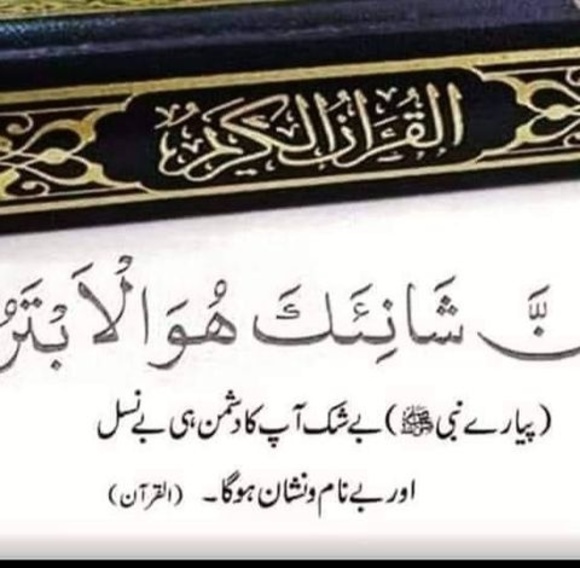 القرآن الكريم
نَّ شَانِئَكَ هُوَ الْاَبْتَرُ
(پیارے نبی ﷺ) بے شک آپ کا دشمن ہی بے نسل
اور بے نام و نشان ہوگا۔ (القرآن)